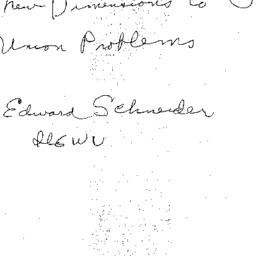 New Dimensions to
Union Problems
Edward Schneider
ILGWU